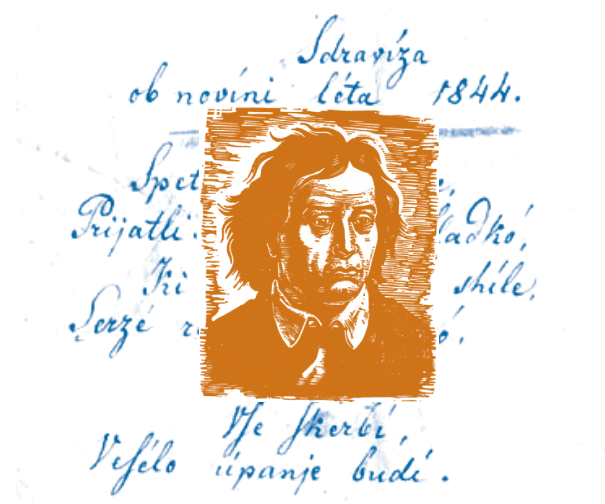 Sdravíza
ob novíni léta 1844.
Spet
Prijatli ladkó,
Ki shíle,
Serzé
Vſe ſkerbí,
Veſélo úpanje budí.